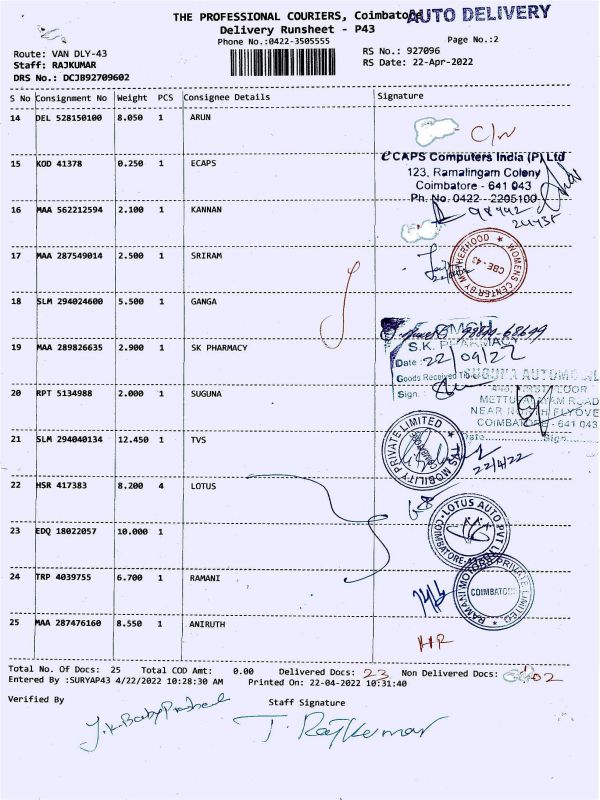 THE PROFESSIONAL COURIERS, Coimbatore
AUTO DELIVERY
Delivery Runsheet - P43
Phone No.:0422-3505555
Page No.:2
Route: VAN DLY-43
RS No.: 927096
Staff: RAJKUMAR
RS Date: 22-Apr-2022
DRS No.: DCJB92709602
S No Consignment No Weight PCS Consignee Details Signature
14 DEL 528150100 8.050 1 ARUN
C/W
15 KOD 41378 0.250 1 ECAPS
CAPS Computers India (P) Ltd
123, Ramalingam Colony
Coimbatore - 641 043
Ph. No. 0422 - 2205100
16 MAA 562212594 2.100 1 KANNAN
98942
24435
17 MAA 287549014 2.500 1 SRIRAM
WOMENS CENTER BY MOTHERHOOD
CBE - 43
18 SLM 294024600 5.500 1 GANGA
19 MAA 289826635 2.900 1 SK PHARMACY
S.K. PHARMACY
Date : 22/04/22
Goods Received
Sign. :
20 RPT 5134988 2.000 1 SUGUNA
SUGUNA AUTOMOBIL
FIRST FLOOR
METTUPALAYAM ROAD
NEAR NORTH FLYOVE
COIMBATORE - 641 043
Date Sign
21 SLM 294040134 12.450 1 TVS
TVS MOBILITY PRIVATE LIMITED
22/4/22
22 HSR 417383 8.200 4 LOTUS
LOTUS AUTO PVT L
COIMBATORE
23 EDQ 18022057 10.000 1
24 TRP 4039755 6.700 1 RAMANI
RAMANI MOTORS PRIVATE LIMITED
COIMBATORE
25 MAA 287476160 8.550 1 ANIRUTH
HR
Total No. Of Docs: 25 Total COD Amt: 0.00 Delivered Docs: 23 Non Delivered Docs: 02
Entered By :SURYAP43 4/22/2022 10:28:30 AM Printed On: 22-04-2022 10:31:40
Verified By
Staff Signature
J.K. Baby Prashad
T. Rajkumar